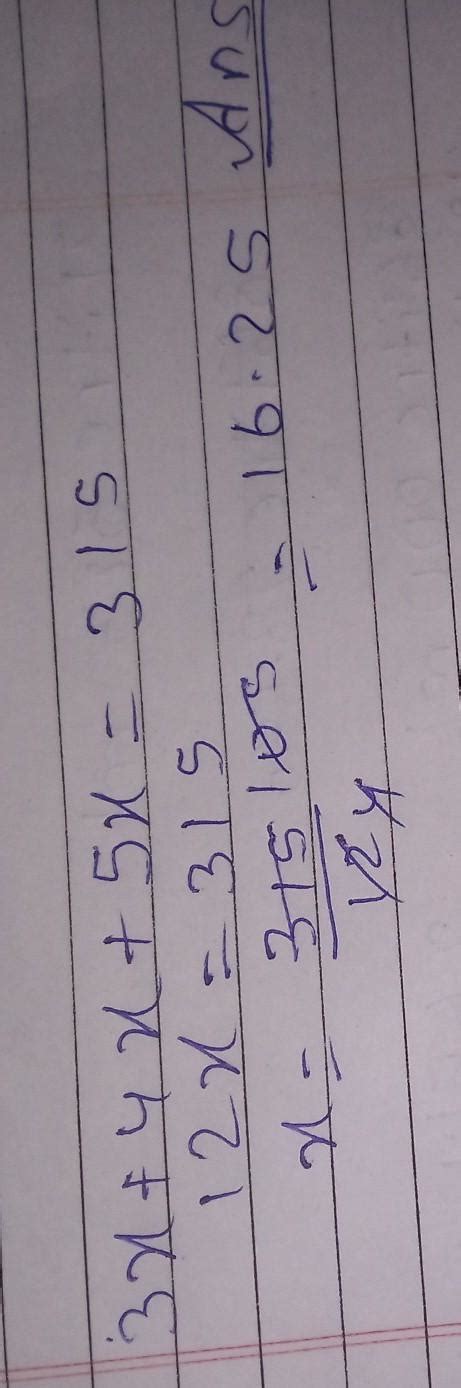 3x+4x+5x=315
12x=315
x= 315 105 = 16.25 Ans
12 4